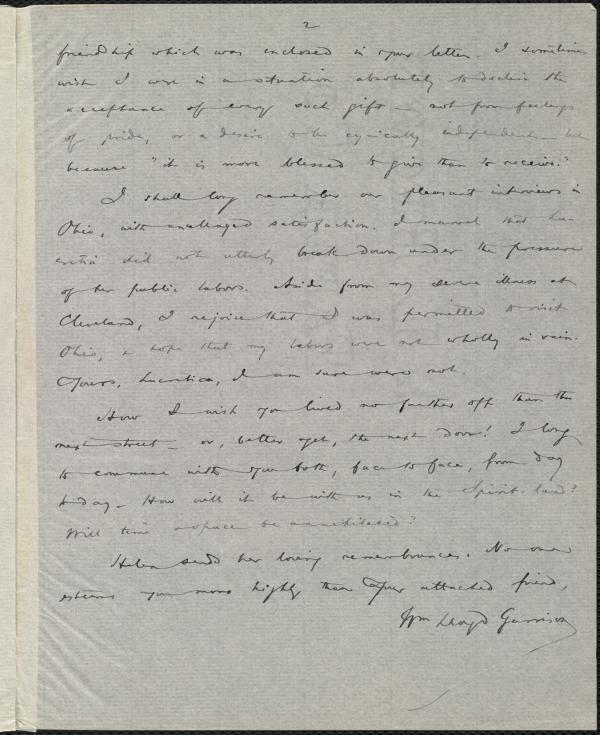 2
friendship which was enclosed in your letter. I sometimes
wish I were in a situation absolutely to decline the
acceptance of every such gift — not from feelings
of pride, or a desire to be cynically independent — but
because "it is more blessed to give than to receive."
I shall long remember our pleasant interviews in
Ohio, with unalloyed satisfaction. I marvel that Lu-
cretia did not utterly break down under the pressure
of her public labors. Aside from my severe illness at
Cleveland, I rejoice that I was permitted to visit
Ohio, & hope that my labors were not wholly in vain.
Yours, Lucretia, I am sure were not.
How I wish you lived no further off than the
next street — or, better yet, the next door! I long
to commune with you both, face to face, from day
to day. How will it be with us in the Spirit-land?
Will time & space be annihilated?
Helen sends her loving remembrances. No one
esteems you more highly than your attached friend,
Wm Lloyd Garrison